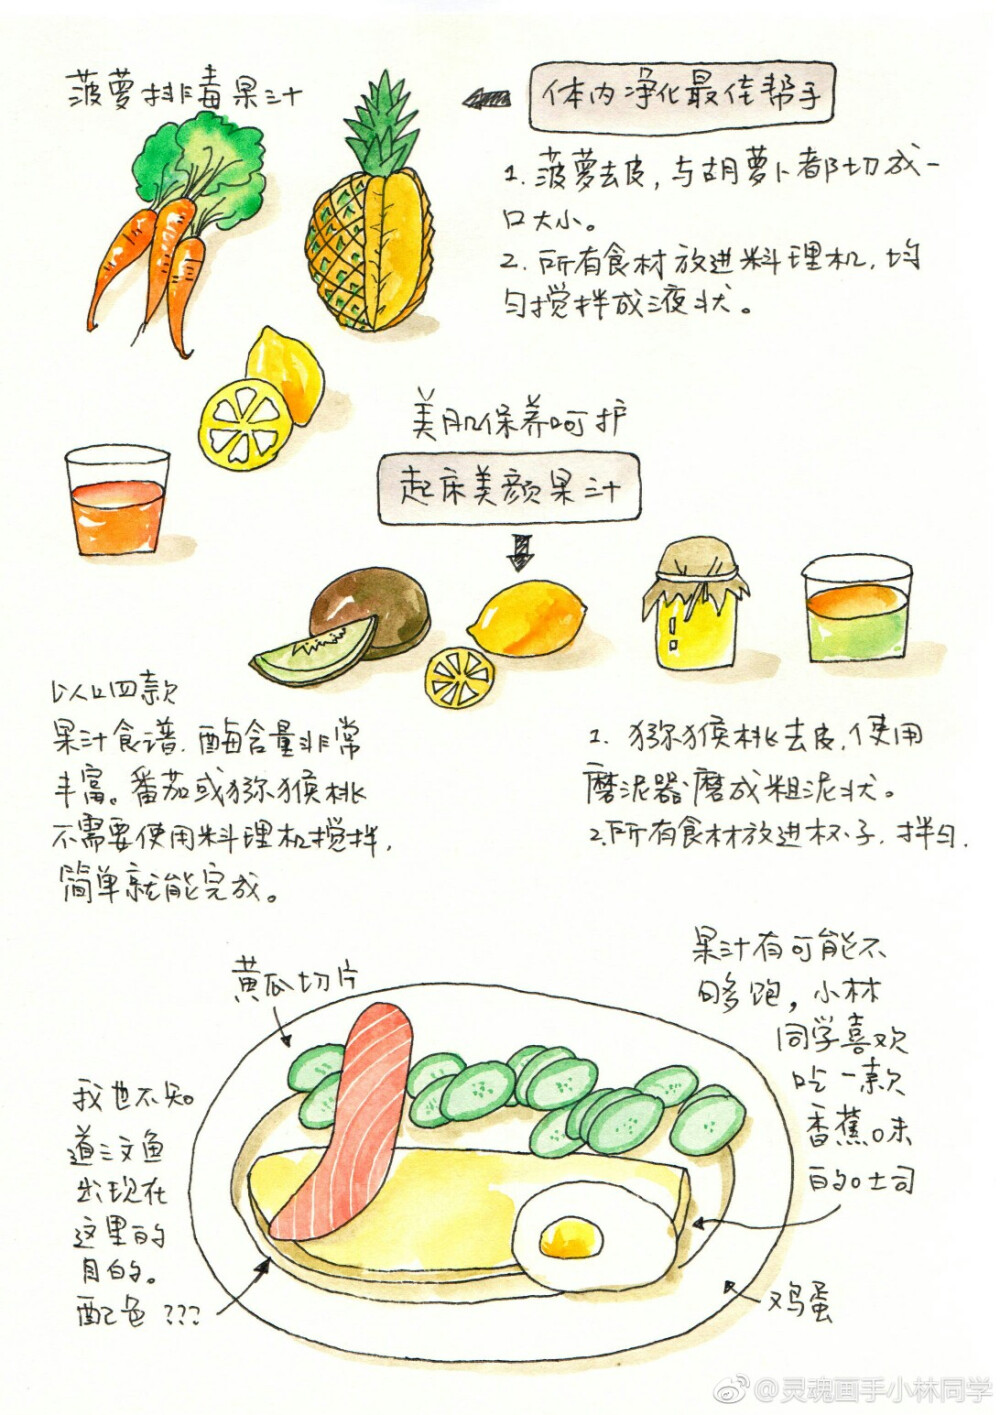 菠萝排毒果汁
体内净化最佳帮手
1. 菠萝去皮，与胡萝卜都切成一
口大小。
2. 所有食材放进料理机，均
匀搅拌成液状。
美肌保养呵护
起床美颜果汁
以上四款
果汁食谱，酶含量非常
丰富。番茄或猕猴桃
不需要使用料理机搅拌，
简单就能完成。
1. 猕猴桃去皮，使用
磨泥器磨成粗泥状。
2.所有食材放进杯子，拌匀.
黄瓜切片
果汁有可能不
够饱，小林
同学喜欢
吃一款
香蕉味
的吐司
我也不知
道三文鱼
出现在
这里的
目的。
配色???
鸡蛋
@灵魂画手小林同学